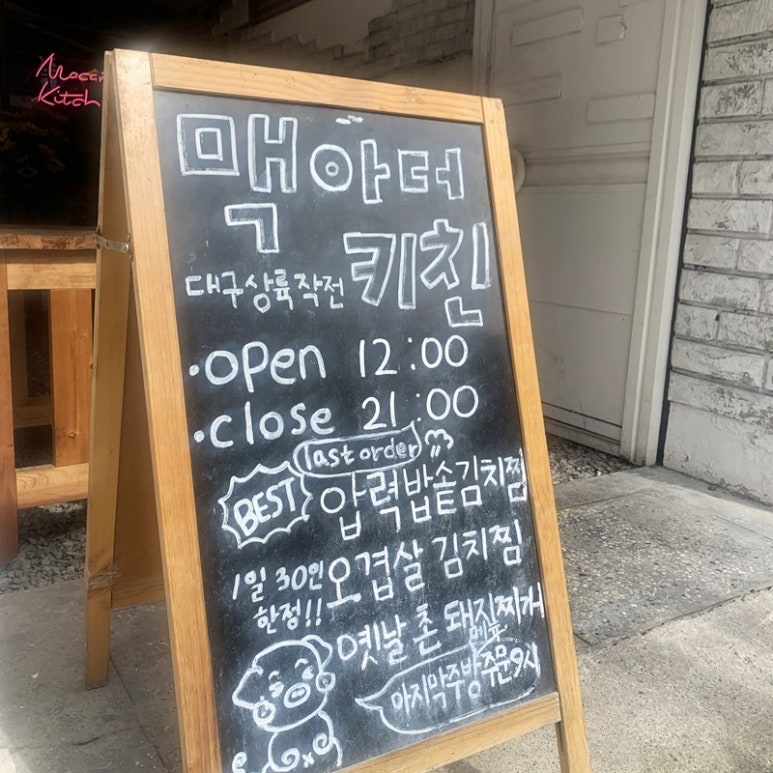 맥아더
키친
대구상륙작전
·open 12:00
·close 21:00
last order
BEST 압력밥솥김치찜
1일 30인 오겹살 김치찜
한정!!
옛날 촌 돼지찌개
마지막주방 주문9시